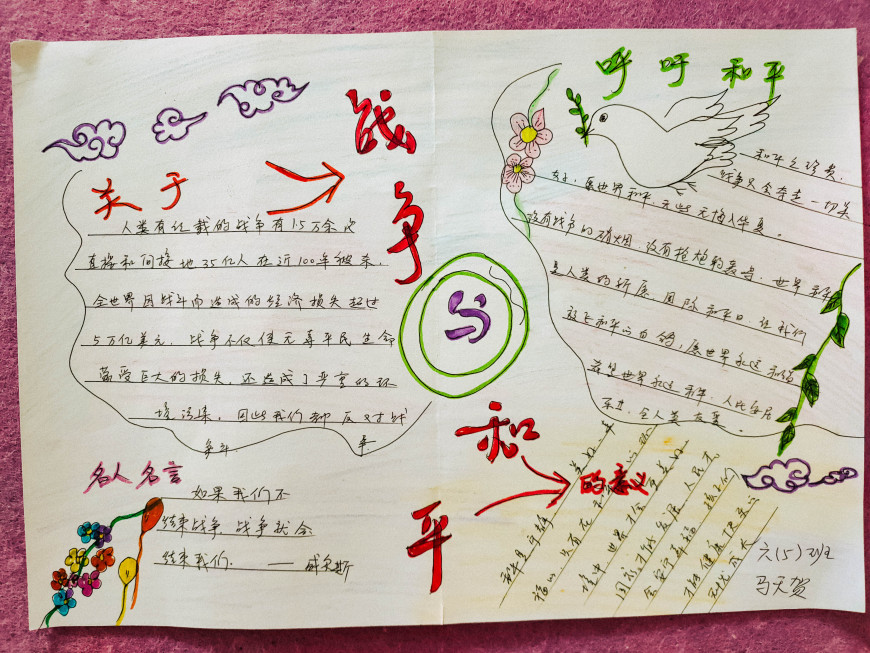 战争与和平
关于
人类有仁载的战争有15万余次
直接和间接地35亿人在近100年被杀，
全世界因战斗而造成的经济损失超过
5万亿美元，战争不仅使无辜平民生命
蒙受巨大的损失，还造成了严重的环
境污染，因此我们都反对战
争斗 争
名人名言
如果我们不
结束战争，战争就会
结束我们. ——威尔斯
呼吁和平
和平之珍贵，
战争只会夺走一切美
好，愿世界和平
没有战争的硝烟，没有枪炮的轰鸣，世界和平
是人类的祈愿，国际和平日，让我们
放飞和平的白鸽，愿世界永远和谐
永远
全人类友爱。
的意义
国家才能发展，人民才
会安宁幸福，孩子们
才能健康快乐的
六(5)班
马天贺